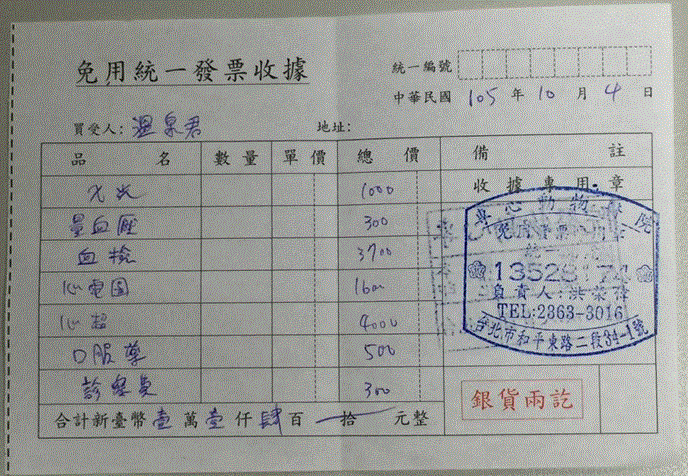 免用統一發票收據
統一編號
中華民國 105 年 10 月 4 日
買受人: 溫泉君 地址:
品名 數量 單價 總價 備註
X光 1000 收據專用章
量血壓 300
血檢 3700
心電圖 1600
心超 4000
口服藥 500
診察費 300
合計新臺幣壹萬壹仟肆百 拾 元整
專心動物 院
負責人:洪榮
TEL:2363-3016
台北市和平東路二段34-1號
銀貨兩訖